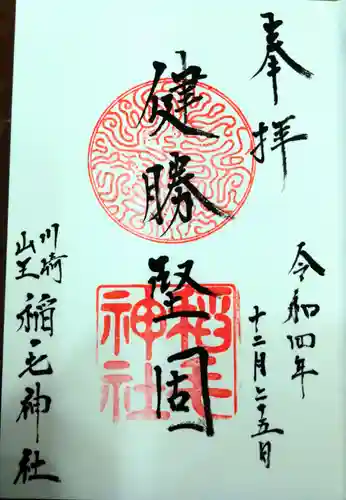 奉拝
健勝堅固
稲毛神社
令和四年
十二月二十五日
川崎
山王
稲毛神社